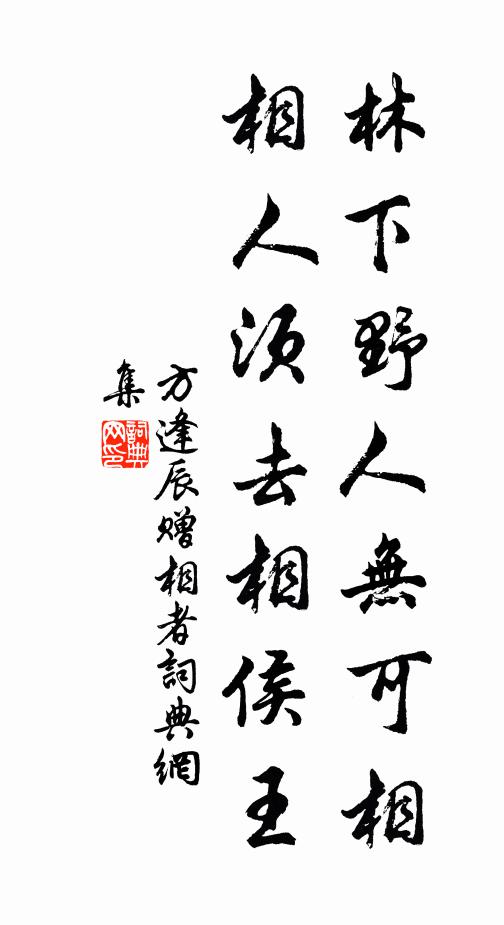 林下野人無可相
相人須去相侯王
方逢辰赠相者詞典網
集
詞典
网印